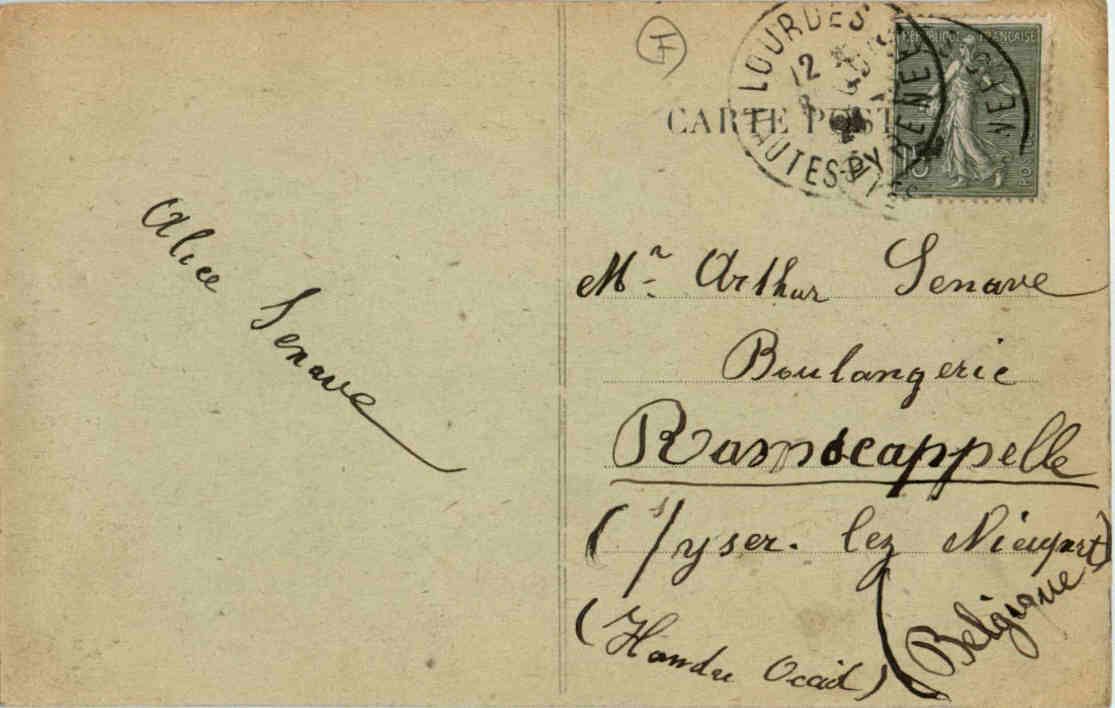 F
LOURDES
12
HAUTES-PYRENEES
RÉPUBLIQUE FRANÇAISE
15
CARTE POST
Alice Senave
Mr Arthur Senave
Boulangerie
Ramscappelle
(s/yser. lez Nieuport)
(Belgique
(Flandre Occid)